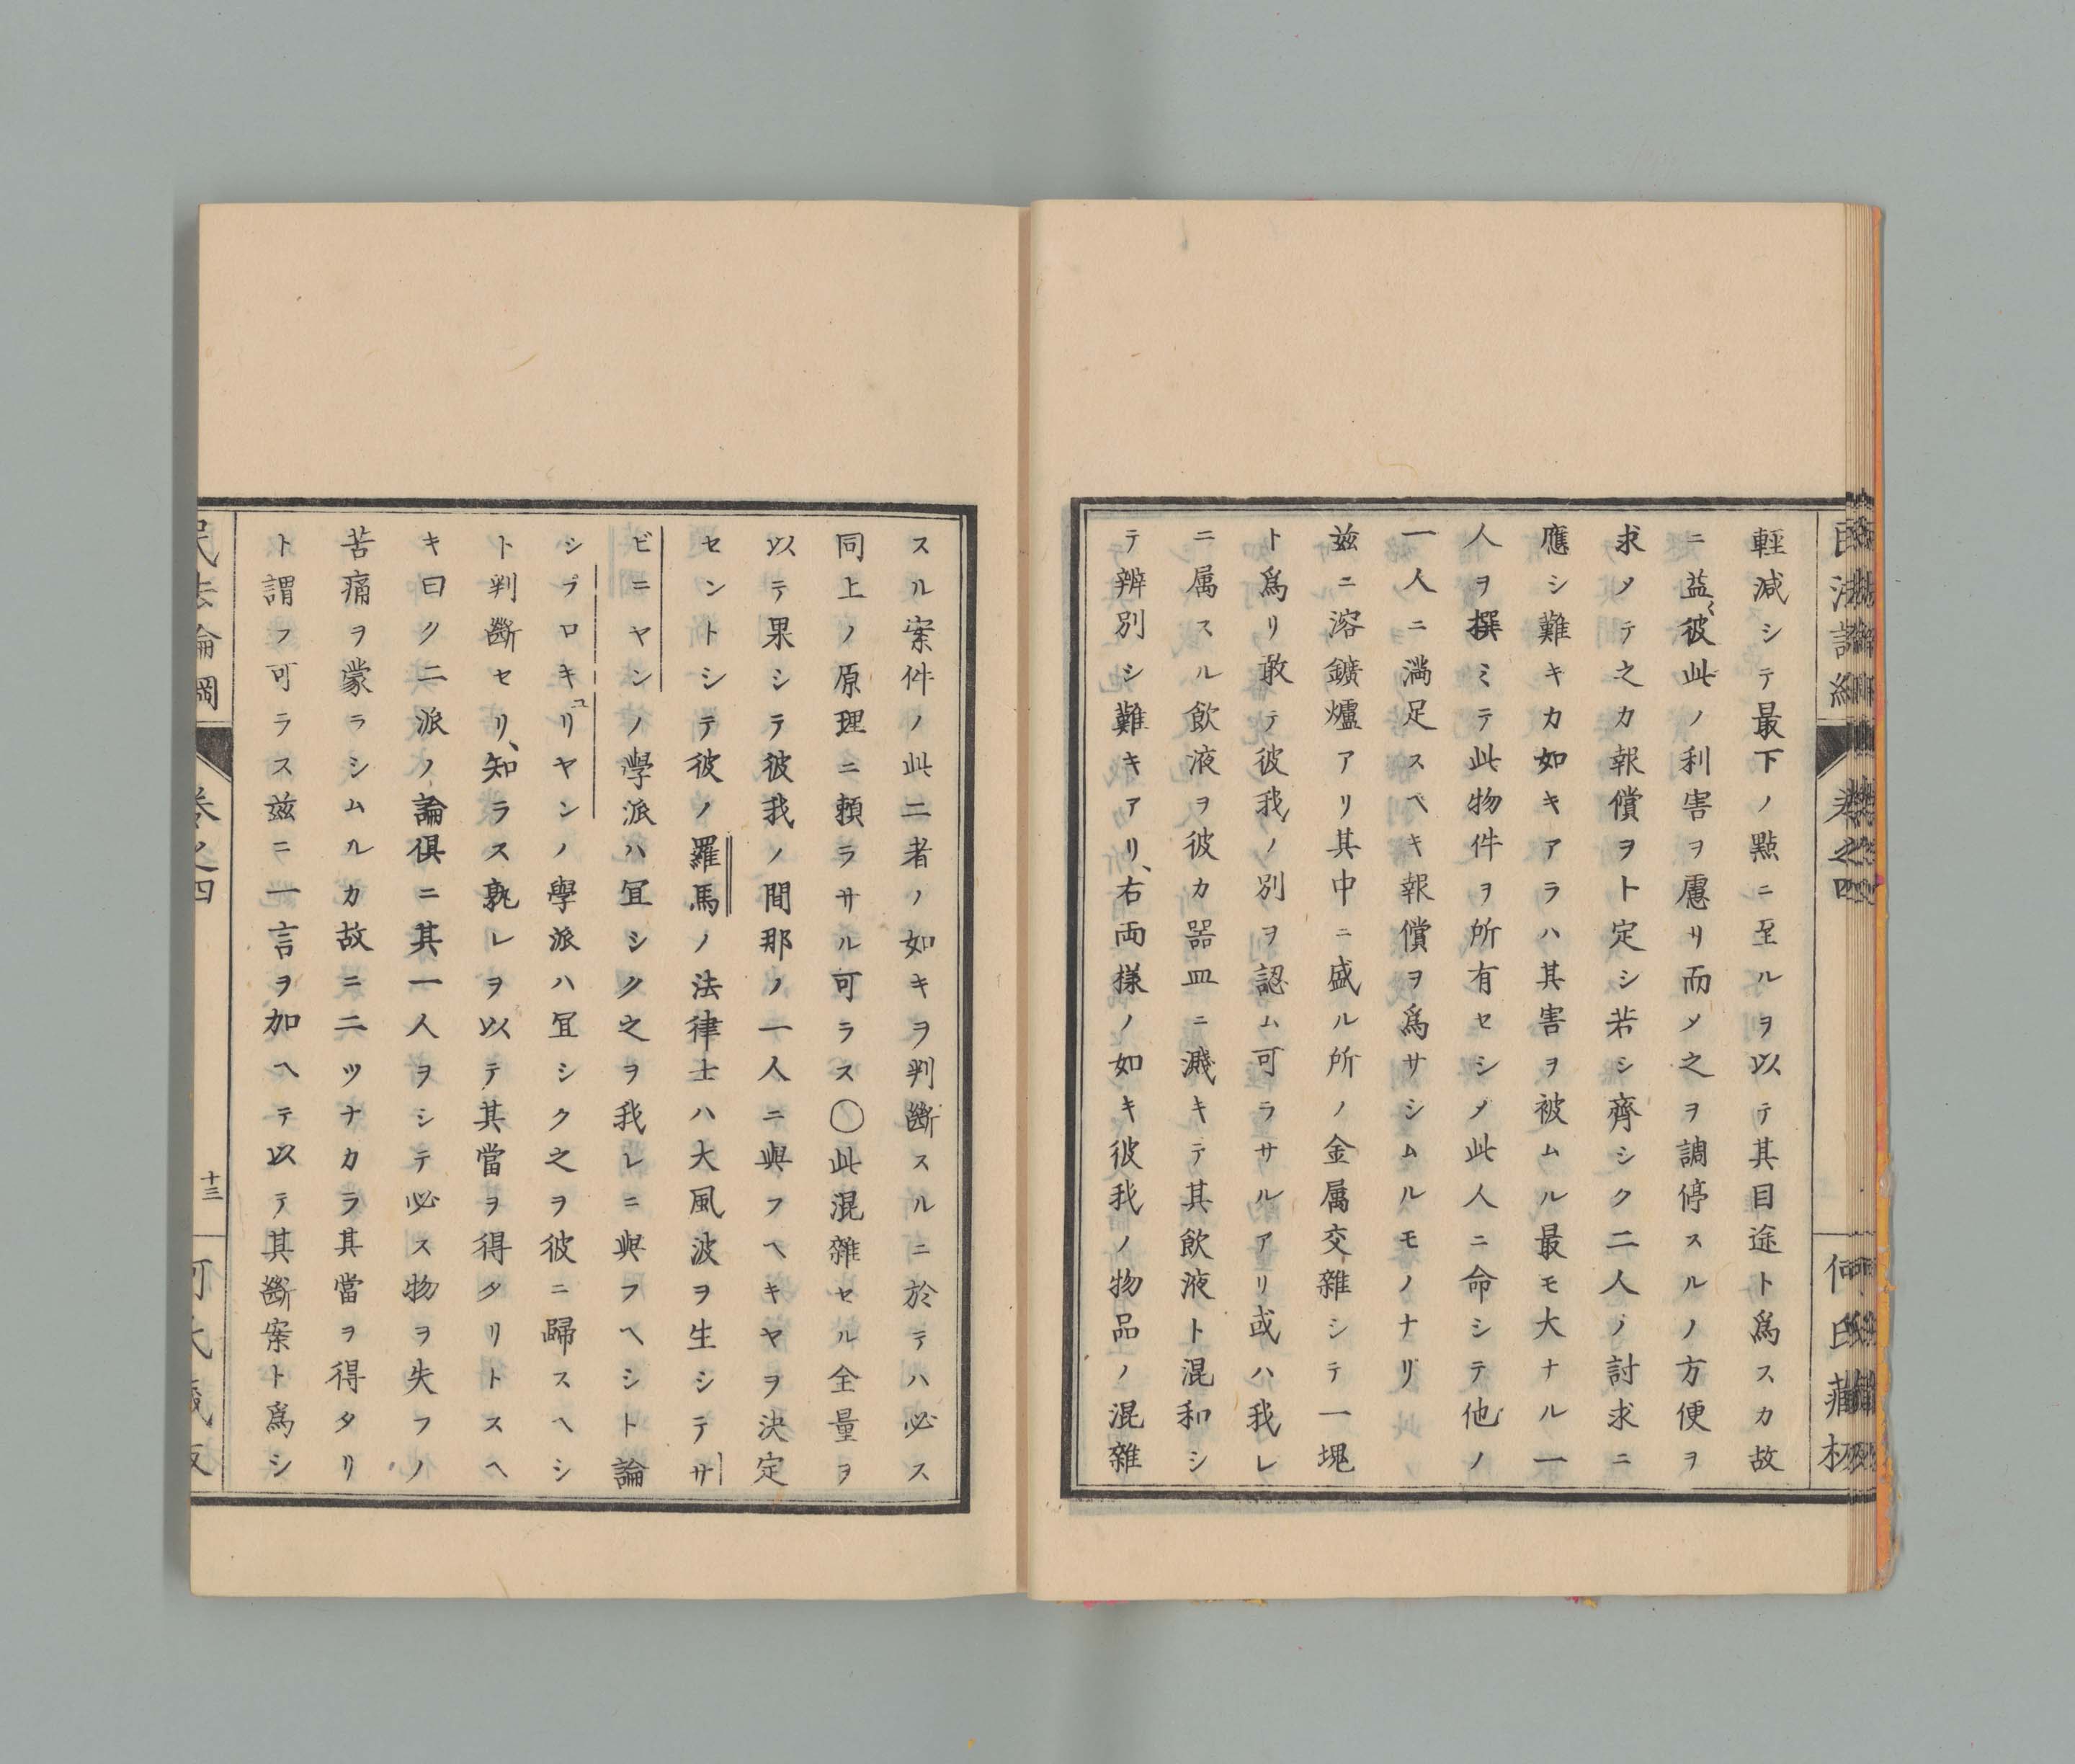 輕減シテ最下ノ點ニ至ルヲ以テ其目途ト爲スカ故
ニ益〻彼此ノ利害ヲ慮リ而メ之ヲ調停スルノ方便ヲ
求メテ之カ報償ヲト定シ若シ齊シク二人ノ討求ニ
應シ難キカ如キアラハ其害ヲ被ムル最モ大ナル一
人ヲ撰ミテ此物件ヲ所有セシメ此人ニ命シテ他ノ
一人ニ満足スヘキ報償ヲ爲サシムルモノナリ
茲ニ溶鑛爐アリ其中ニ盛ル所ノ金属交雜シテ一塊
ト爲リ敢テ彼我ノ別ヲ認ム可ラサルアリ或ハ我レ
ニ属スル飲液ヲ彼カ器皿ニ濺キテ其飲液ト混和シ
テ辨別シ難キアリ、右両樣ノ如キ彼我ノ物品ノ混雜
スル案件ノ此二者ノ如キヲ判斷スルニ於テハ必ス
同上ノ原理ニ頼ラサル可ラス〇此混雜セル全量ヲ
以テ果シテ彼我ノ間那ノ一人ニ與フヘキヤヲ決定
セントシテ彼ノ羅馬ノ法律士ハ大風波ヲ生シテサ
ビニヤンノ學派ハ冝シク之ヲ我レニ與フヘシト論
シプロキュリヤンノ學派ハ冝シク之ヲ彼ニ歸スヘシ
ト判斷セリ、知ラス孰レヲ以テ其當ヲ得タリトスヘ
キ曰ク二派ノ論俱ニ其一人ヲシテ必ス物ヲ失フノ
苦痛ヲ蒙ラシムルカ故ニ二ツナカラ其當ヲ得タリ
ト謂フ可ラス茲ニ一言ヲ加ヘテ以テ其斷案ト爲シ
民法論綱 卷之四 十三 何氏藏板